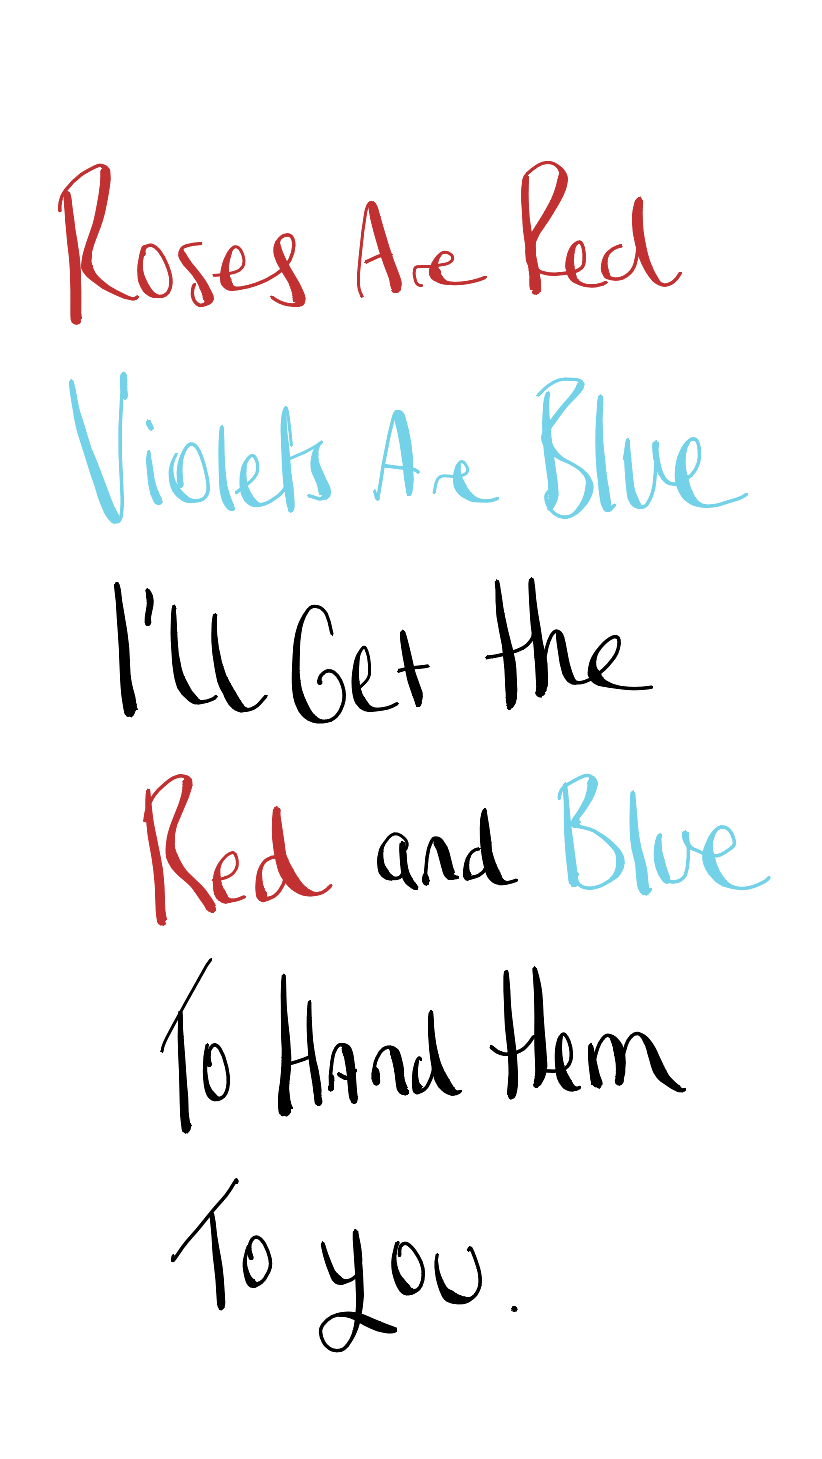 Roses Are Red
Violets Are Blue
I'll Get the
Red and Blue
To Hand them
To you.